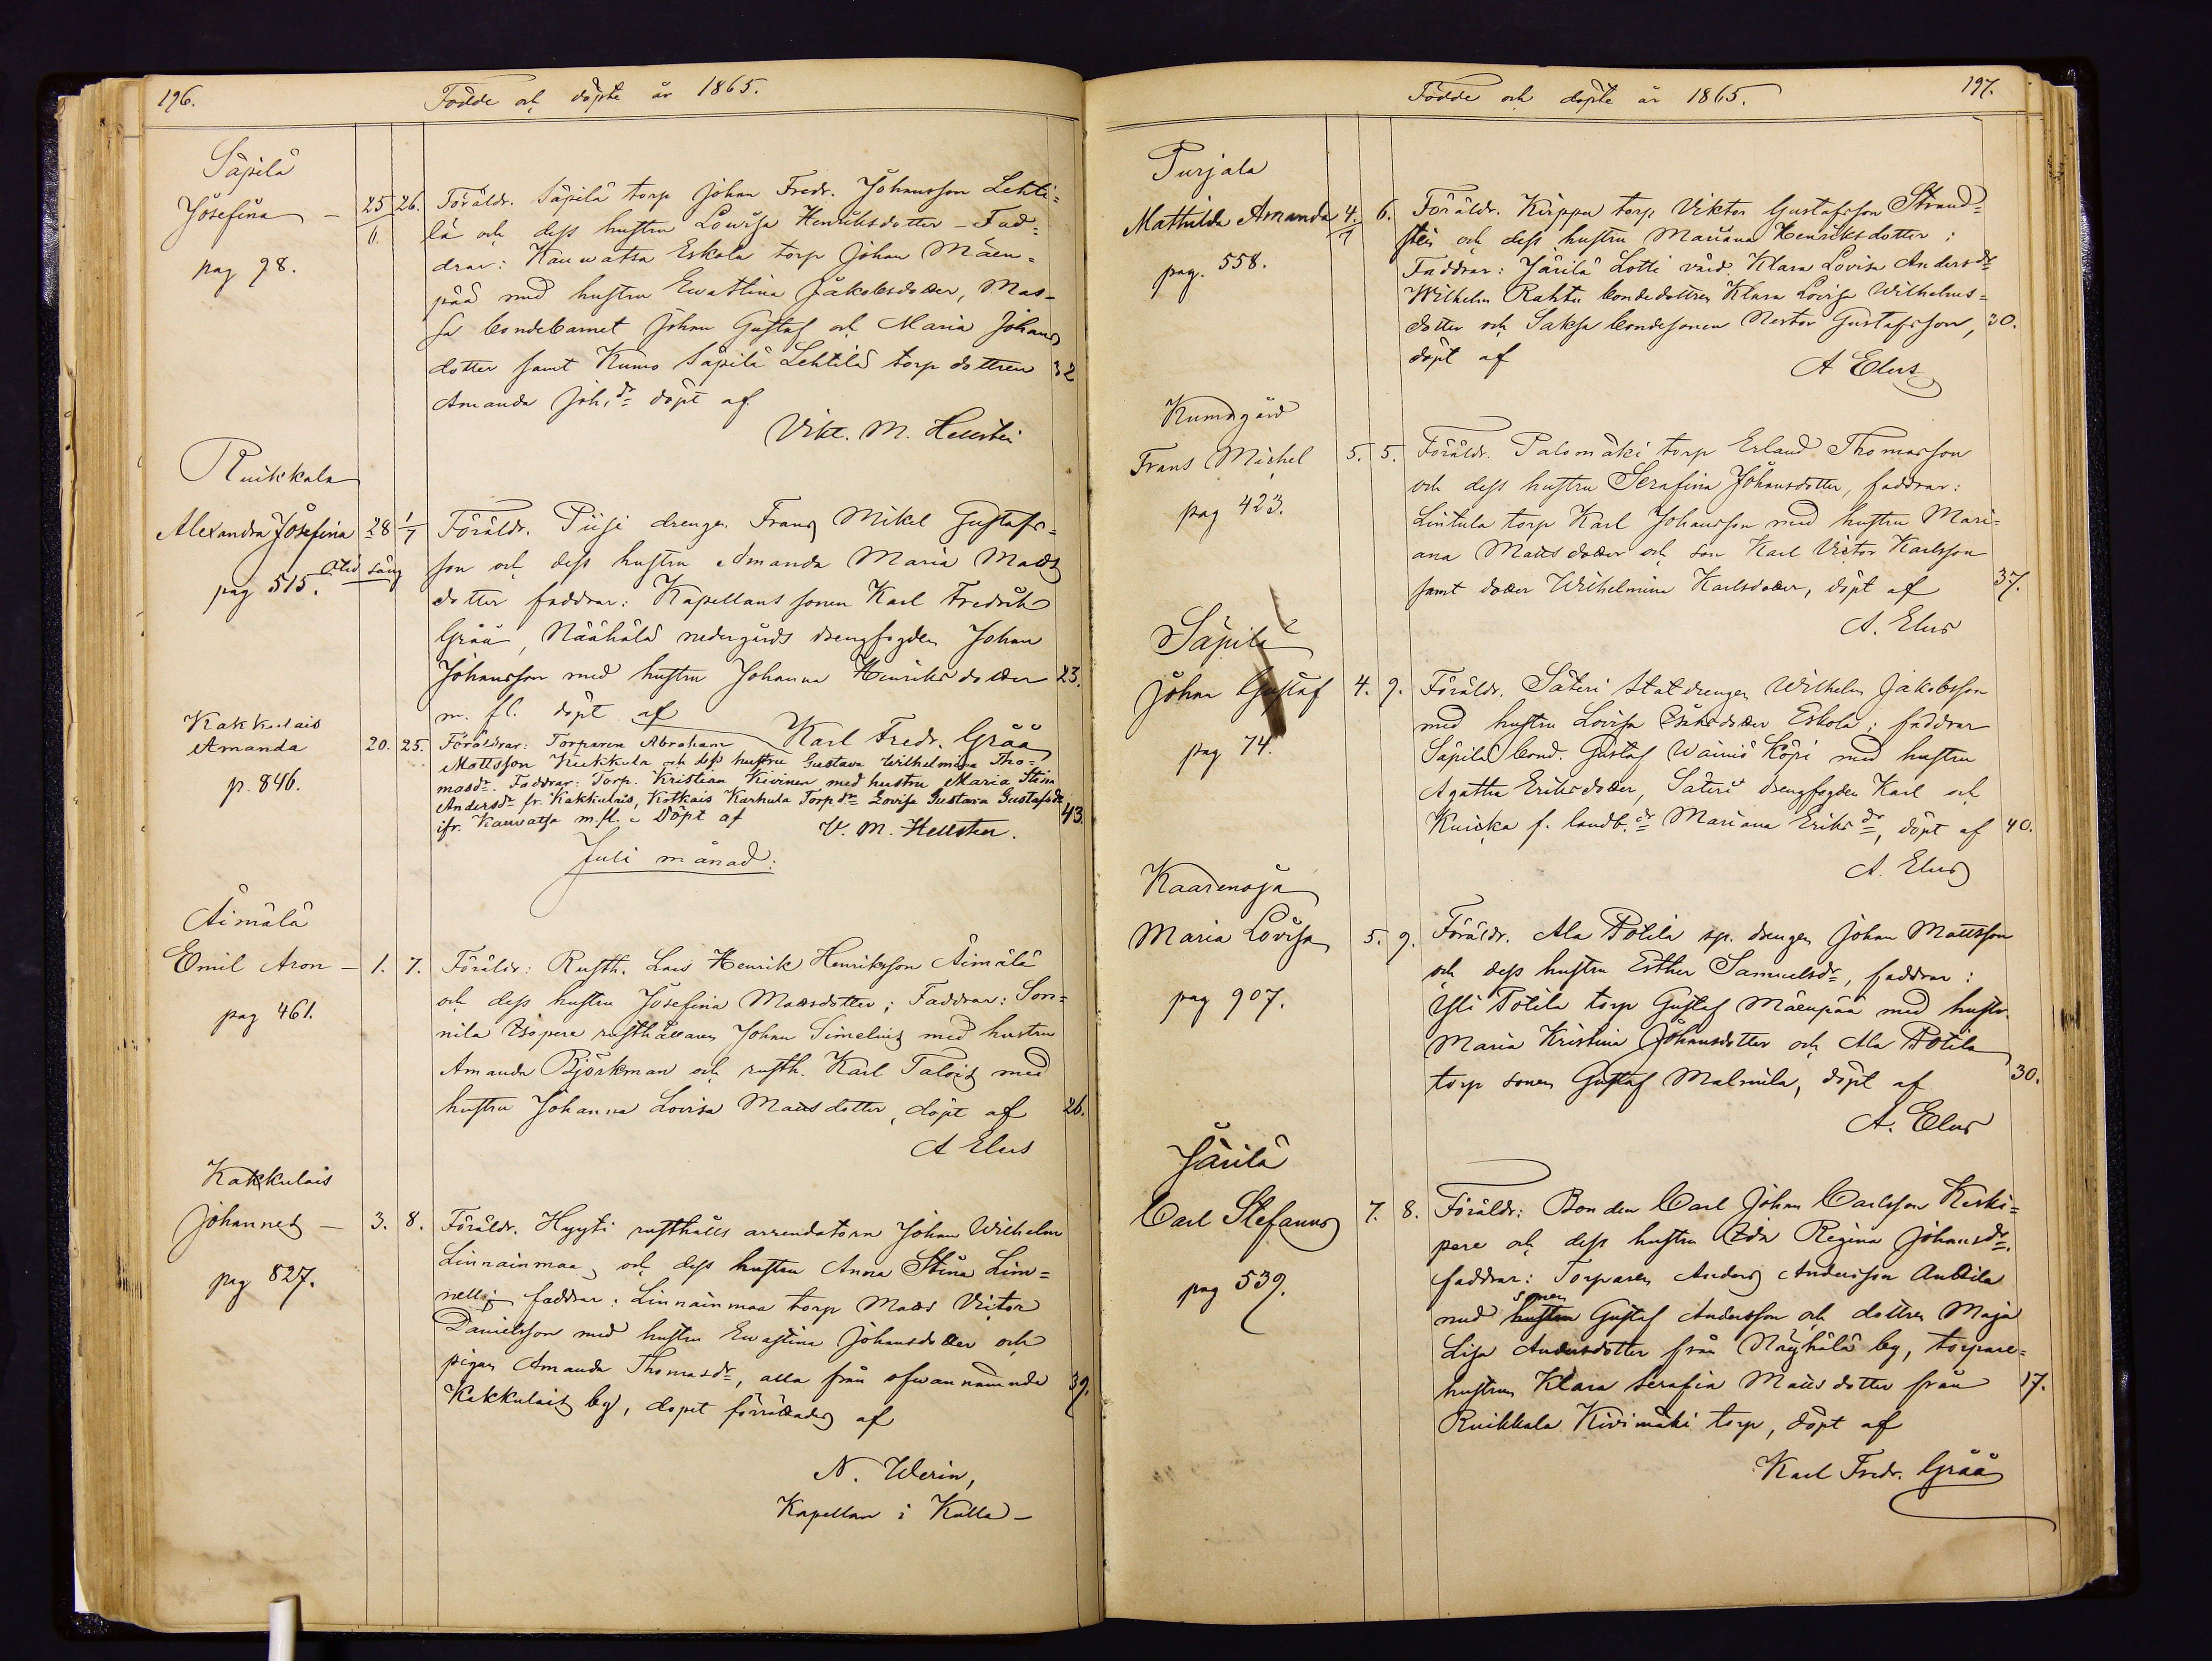 196.
Födde och döpte år 1865.
Säpilä
Josefina — 25/6. 26. Föräldr. Säpilä torp Johan Fredr. Johansson Lehti=
pag 98.
lä och dess hustru Lovisa Henriksdotter – Fad=
drar: Kauwatsa Eskola torp Johan Mäen=
pää med hustru Ewastina Jakobsdotter, Mas-
sa bondebarnet Johan Gustaf och Maria Johans
dotter samt Kumo Säpilä Lehtilä torp dottren 32
Amanda Joh.dr döpt af
Vikt. M. Hellstén
Ruikkala
Alexandra Josefina 28 1/7 Föräldr. Piisi drengen Frans Mikel Gustafs=
pag 515.
son och dess hustru Amanda Maria Matts
dotter faddrar: Kapellans sonen Karl Fredrik
Gråå, Näähälä nedergårds drengfogden Johan
Johansson med hustru Johanna Henriksdotter 23.
m. fl. döpt af
Karl Fredr. Gråå
Kakkulais
Amanda 20. 25. Föräldrar: Torparen Abraham
p. 846.
Mattsson Kukkula och dess hustru Gustava Wilhelmina Tho=
masdr. Faddrar: Torp. Kristian Kivinen med hustru Maria Stina
Andersdr fr. Kakkulais, Kotkais Karhula Torpdr Lovisa Gustava Gustafsdr
ifr. Kauvatsa m.fl. Döpt af 43.
V. M. Hellstén.
Juli månad:
Äimälä
Emil Aron — 1. 7. Föräldr: Rusth. Lars Henrik Henriksson Äimälä
pag 461.
och dess hustru Josefina Mattsdotter; Faddrar: Son=
nila Isopere rusthållaren Johan Simelius med hustru
Amanda Björkman och rusth. Karl Talois med
hustru Johanna Lovisa Mattsdotter, döpt af 26.
A Elus
Kakkulais
Johannes — 3. 8. Föräldr. Hyyti rusthålls arrendatorn Johan Wilhelm
pag 827.
Linnainmaa, och dess hustru Anna Stina Lin=
nell; faddrar: Linnainmaa torp Matts Victor
Danielsson med hustru Ewastina Johansdotter och
pigan Amanda Thomasdr, alla från ofwannämnde 39.
Kakkulais by, dopet förrättades af
N. Werin,
Kapellan i Kulla –
197.
Födde och döpte år 1865.
Purjala
Mathilda Amanda 4./7 6. Föräldr. Kirppu torp Viktor Gustafsson Strand=
pag. 558.
stén och dess hustru Mariana Henriksdotter;
Faddrar: Järilä Lotti värd. Klara Lovisa Andersdr
Wilhelm Rahtu bondedottren Klara Lovisa Wilhelms=
dotter och Saksa bondesonen Nestor Gustafsson, 30.
döpt af
A Elus
Kumogård
Frans Michel 5. 5. Föräldr. Palomäki torp Erland Thomasson
pag 423.
och dess hustru Serafina Johansdotter, faddrar:
Lintula torp Karl Johansson med hustru Mari=
ana Mattsdotter och son Karl Victor Karlsson
samt dotter Wilhelmina Karlsdotter, döpt af 37.
A. Elus
Säpilä
Johan Gustaf 4. 9. Föräldr. Säteri statdrengen Wilhelm Jakobsson
pag 74.
med hustru Lovisa Eriksdotter Eskola; faddrar
Säpilä bond. Gustaf Wäiniö Köpi med hustru
Agatha Eriksdotter, Säteri drengfogden Karl och
f. landb.dr Mariana Eriksdr, döpt af 40.
A. Elus
Kaarenoja
Maria Lovisa 5. 9. Föräldr. Ala Potila sp. drengen Johan Mattsson
pag 907.
och dess hustru Esther Samuelsdr, faddrar:
Yli Potila torp Gustaf Mäenpää med hustr.
Maria Kristina Johansdotter och Ala Potila
torp sonen Gustaf Malmila, döpt af 30.
A. Elus
Järilä
Carl Stefanus 7. 8. Föräldr: Bonden Carl Johan Carlsson Keski=
pag 539.
pere och dess hustru Ida Regina Johansdr.
faddrar: Torparen Anders Andersson Anttila
med hustru sonen Gustaf Andersson och dottren Maja
Lisa Andersdotter från Näyhälä by, torpare=
hustrun Klara Serafia Mattsdotter från 17.
Ruikkala Kivimäki torp, döpt af
Karl Fredr. Gråå